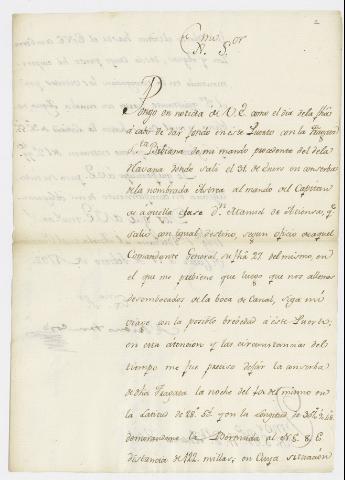 2
Exmo. Sor.
Pongo en noticia de V.E. como el dia de la fha
acabo de dar fondo en este Puerto con la Fragata
Sta. Juliana de mi mando procedente del de la
Havana donde sali el 31 de Enero en conserva
de la nombrada al mando del Capitan
de aquella clase Dn. Manuel de q.e
salio con igual destino, segun oficio de aquel
Comandante General, su fha 27 del mismo, en
el que me previene que luego que nos allemos
desembocados de la boca de Canal, siga mi
viage con la posible brevedad à este Puerto;
en esta atencion y las circunstancias del
tiempo me fue preciso dejar la conserba
de dha Fragata la noche del del mismo en
la Latitud de 28° y en la longitud de
demorandome la Bermuda al N 5 8 E
distancia de 422 millas; en cuya situacion